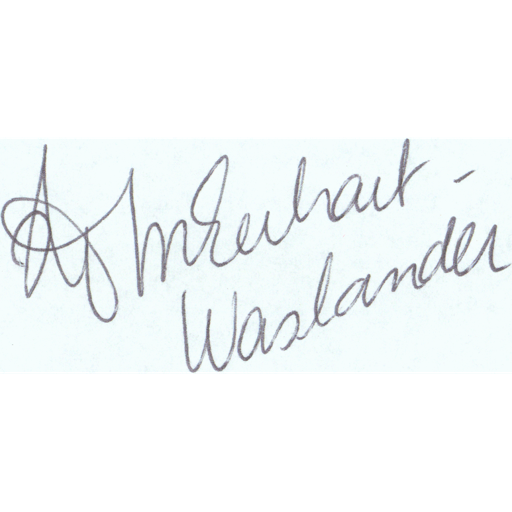 Erhart -
Waslander